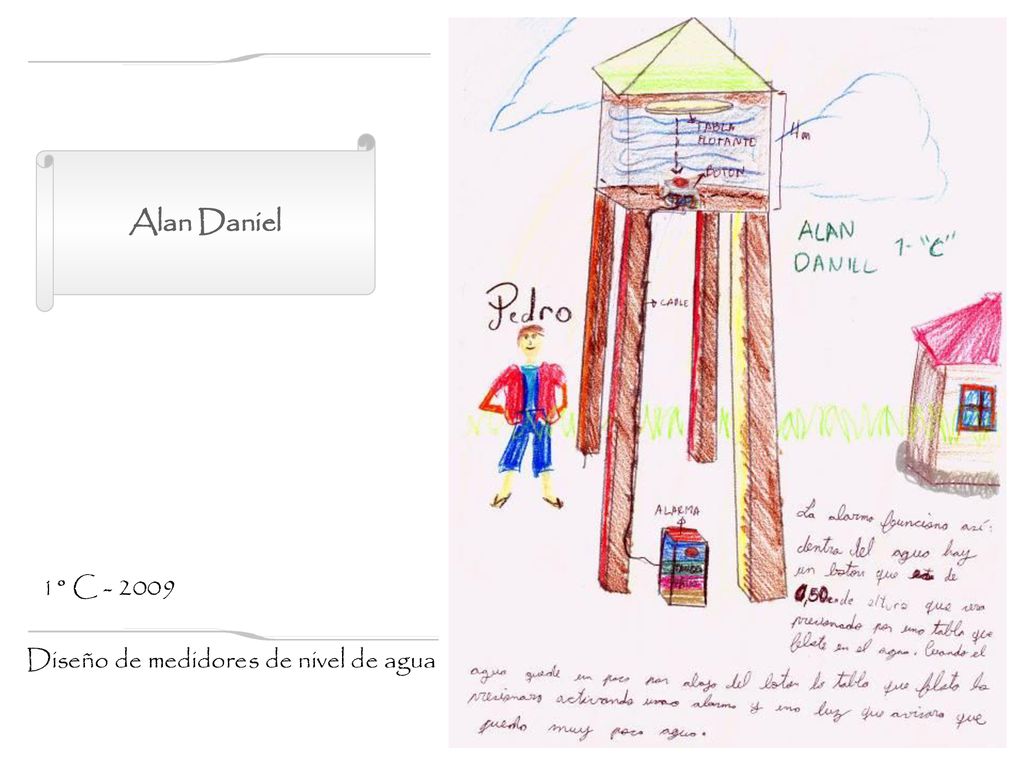 Alan Daniel
1º C - 2009
Diseño de medidores de nivel de agua
TABLA
FLOTANTE
4m
BOTON
ALAN
DANIEL
1- "C"
CABLE
Pedro
ALARMA
La alarma funciona así:
dentro del agua hay
un boton que de
0,50 de altura que sera
presionado por una tabla que
flote en el agua. Cuando el
agua quede un poco por abajo del boton la tabla que flota lo
presionara activando una alarma y una luz que avisara que
queda muy poca agua.